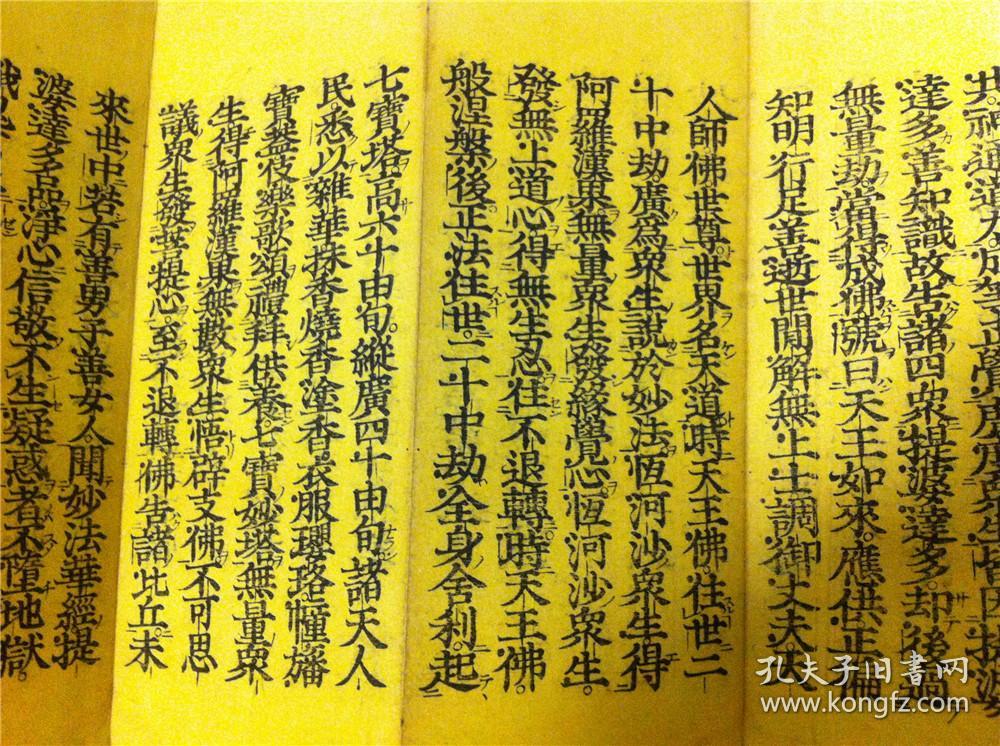 共神通道力成等正覺廣度衆生皆因提婆
達多善知識故告諸四衆提婆達多却後過
無量劫當得成佛號曰天王如來應供正徧
知明行足善逝世閒解無上士調御丈夫天
人師佛世尊世界名天道時天王佛住世二
十中劫廣爲衆生說於妙法恆河沙衆生得
阿羅漢果無量衆生發緣覺心恆河沙衆生
發無上道心得無生忍住不退轉時天王佛
般涅槃後正法住世二十中劫全身舍利起
七寶塔高六十由旬縱廣四十由旬諸天人
民悉以雜華抹香燒香塗香衣服瓔珞幢旛
寶蓋伎樂歌頌禮拜供養七寶妙塔無量衆
生得阿羅漢果無數衆生悟辟支佛不可思
議衆生發菩提心至不退轉佛告諸比丘未
來世中若有善男子善女人聞妙法華經提
婆達多品淨心信敬不生疑惑者不墮地獄
孔夫子旧書网
www.kongfz.com